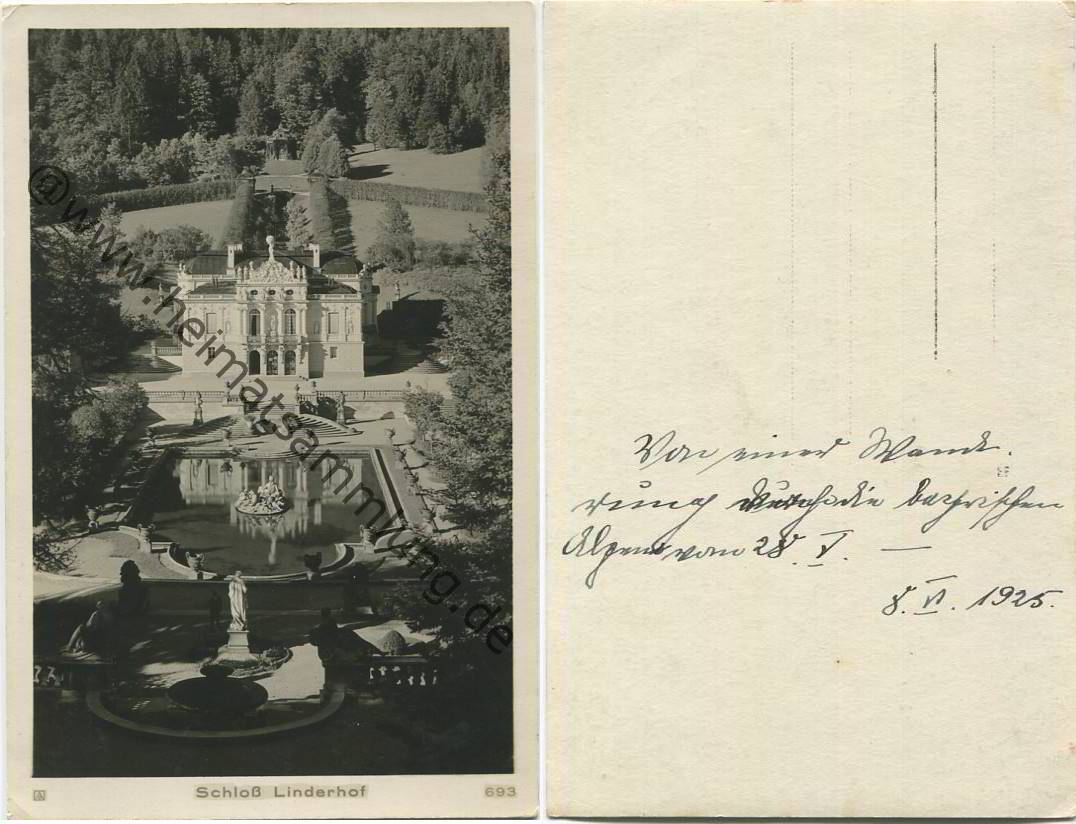 @www.heimatsammlung.de
Schloß Linderhof
693
Von einer Wande-
rung durch die bayrischen
Alpen vom 28. V. —
8. VI. 1925.